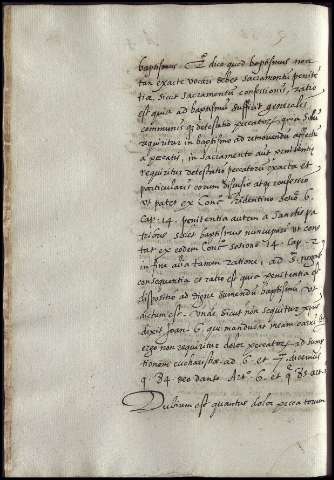 baptismus. Et dico quod baptismus non
tam exacte vocari debet sacramentū penitē
tiæ, sicut sacramentū confessionis, ratio
est quia ad baptismū sufficit generalis
communis q; detestatio peccatorū, quia solū
requiritur in baptismo ad removendū affectū
a peccatis, in sacramento aut penitentiæ
requiritur detestatio peccatorū exacta et
particularis eorum discussio atq; confessio
ut patet ex Conc. Tridentino sess. 6.
cap. 14. penitentia autem a sanctis pa
tribus solet baptismus nuncupari ut cons
tat ex eodem Conc. sessione 14. cap. 2.
in fine alia tamen ratione, ad 5. nego
consequentia et ratio est quia penitentia est
dispositio ad digne sumendū baptismū ut
dictum est. Unde sicut non sequitur
dixit Joan. 6. qui manducat meam carnē
ergo non requiritur dolor peccatorū ad sump
tionem eucharistiæ. ad 6. et 7. dicemus
q. 84. deo dante. Art. 6. et q. 85. art.
Dubium est quantus dolor peccatorum